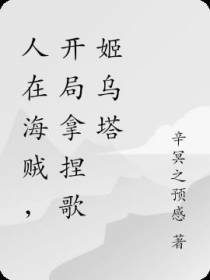 人在海贼，
开局拿捏歌
姬乌塔
辛冥之预感 著